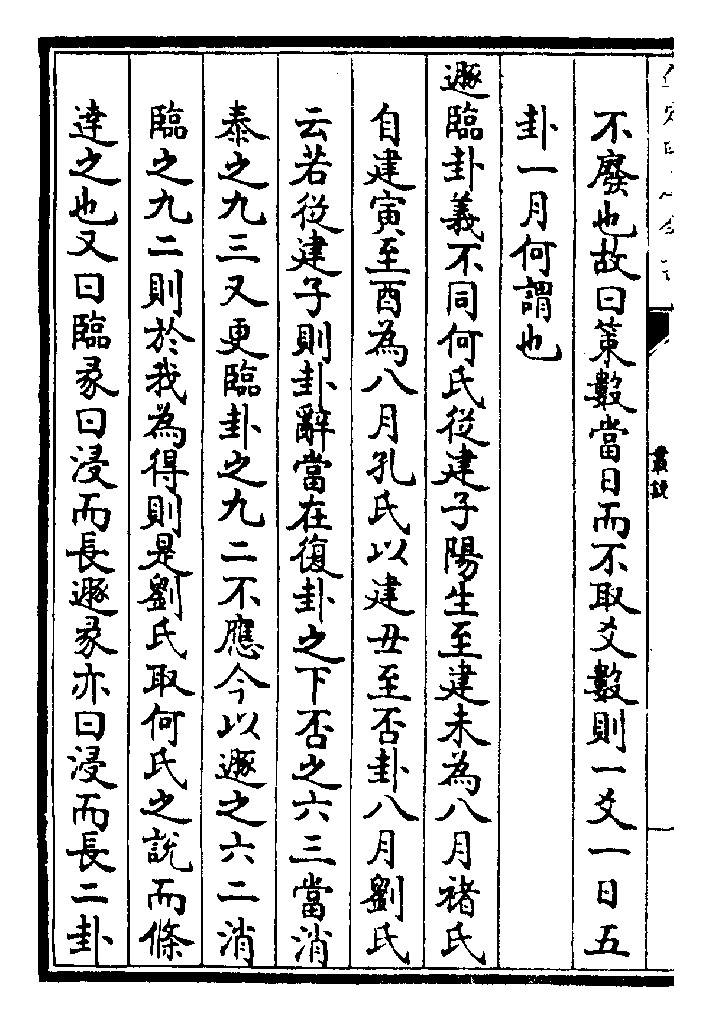 不廢也故曰策數當日而不取爻數則一爻一日五
卦一月何謂也
遯臨卦義不同何氏從建子陽生至建未為八月褚氏
自建寅至酉為八月孔氏以建丑至否卦八月劉氏
云若從建子則卦辭當在復卦之下否之六三當消
泰之九三又更臨卦之九二不應今以遯之六二消
臨之九二則於我為得則是劉氏取何氏之說而條
達之也又曰臨彖曰浸而長遯彖亦曰浸而長二卦
叢說